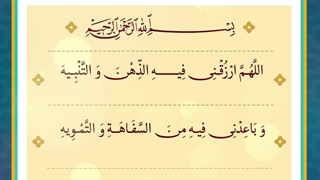 بِسْمِ اللهِ الرَّحْمٰنِ الرَّحِيْمِ
اللَّهُمَّ ارْزُقْنِي فِيهِ الذِّهْنَ وَ التَّنْبِيهَ
وَ بَاعِدْنِي فِيهِ مِنَ السَّفَاهَةِ وَ التَّمْوِيهِ